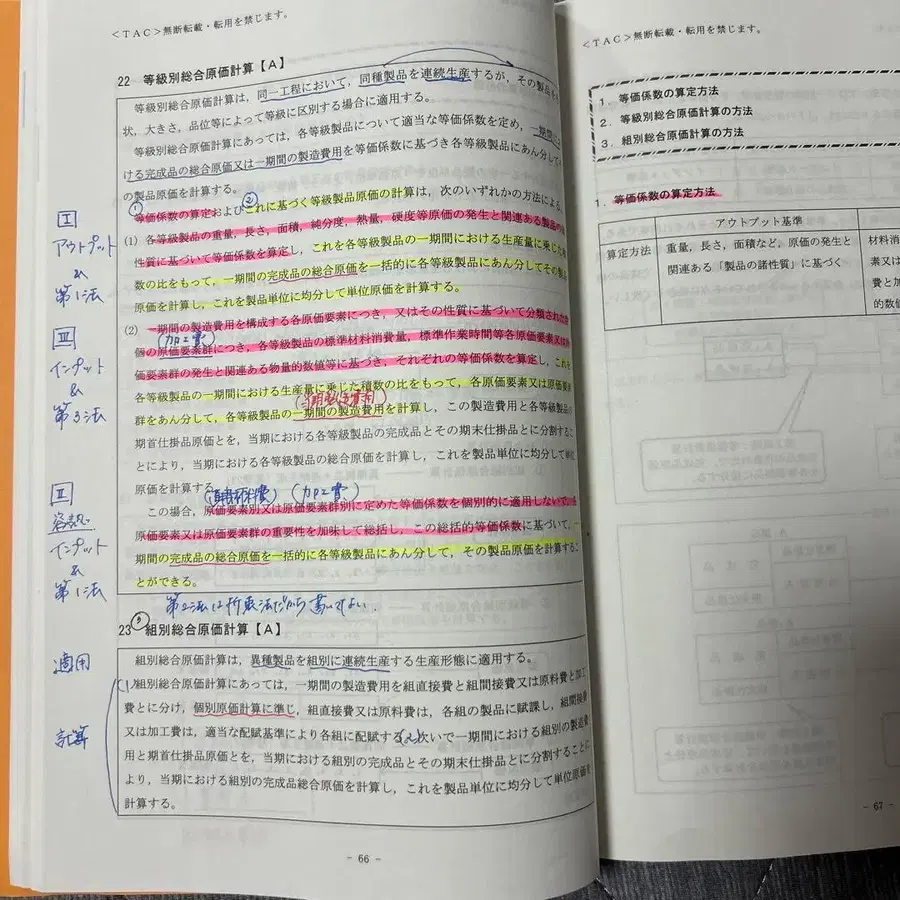 <TAC>無断転載・転用を禁じます。
22 等級別総合原価計算【A】
等級別総合原価計算は，同一工程において，同種製品を連続生産するが，その製品を
状，大きさ，品位等によって等級に区別する場合に適用する。
等級別総合原価計算にあっては，各等級製品について適当な等価係数を定め，一期間に
ける完成品の総合原価又は一期間の製造費用を等価係数に基づき各等級製品にあん分して
の製品原価を計算する。
① ②
等価係数の算定およびこれに基づく等級製品原価の計算は，次のいずれかの方法による
(1) 各等級製品の重量，長さ，面積，純分度，熱量，硬度等原価の発生と関連ある製品の
性質に基づいて等価係数を算定し，これを各等級製品の一期間における生産量に乗じた
数の比をもって，一期間の完成品の総合原価を一括的に各等級製品にあん分してその製
原価を計算し，これを製品単位に均分して単位原価を計算する。
(2) 一期間の製造費用を構成する各原価要素につき，又はその性質に基づいて分類された
(加工費)
個の原価要素群につき，各等級製品の標準材料消費量，標準作業時間等各原価要素又は
価要素群の発生と関連ある物量的数値等に基づき，それぞれの等価係数を算定し，これを
各等級製品の一期間における生産量に乗じた積数の比をもって，各原価要素又は原価要素
群をあん分して，各等級製品の一期間の製造費用を計算し，この製造費用と各等級製品の
期首仕掛品原価とを，当期における各等級製品の完成品とその期末仕掛品とに分割するこ
とにより，当期における各等級製品の総合原価を計算し，これを製品単位に均分して単位
原価を計算する。
(直接材料費) (加工費)
この場合，原価要素別又は原価要素群別に定めた等価係数を個別的に適用しないで，
原価要素又は原価要素群の重要性を加味して総括し，この総括的等価係数に基づいて，一
期間の完成品の総合原価を一括的に各等級製品にあん分して，その製品原価を計算するこ
とができる。
第2法は折衷法だから書いてない.
23 組別総合原価計算【A】
組別総合原価計算は，異種製品を組別に連続生産する生産形態に適用する。
(1) 組別総合原価計算にあっては，一期間の製造費用を組直接費と組間接費又は原料費と加工
費とに分け，個別原価計算に準じ，組直接費又は原料費は，各組の製品に賦課し，組間接費
又は加工費は，適当な配賦基準により各組に配賦する。(2)次いで一期間における組別の製造費
用と期首仕掛品原価とを，当期における組別の完成品とその期末仕掛品とに分割することに
より，当期における組別の完成品総合原価を計算し，これを製品単位に均分して単位原価を
計算する。
- 66 -
Ⅰ
アウトプット
&
第1法
Ⅲ
インプット
&
第3法
Ⅱ
インプット
&
第1法
適用
計算
<TAC>無断転載・転用を禁じます。
1．等価係数の算定方法
2．等級別総合原価計算の方法
3．組別総合原価計算の方法
1．等価係数の算定方法
アウトプット基準
算定方法
重量，長さ，面積など，原価の発生と
関連ある「製品の諸性質」に基づく
材料消
素又は
費と加
的数値
- 67 -